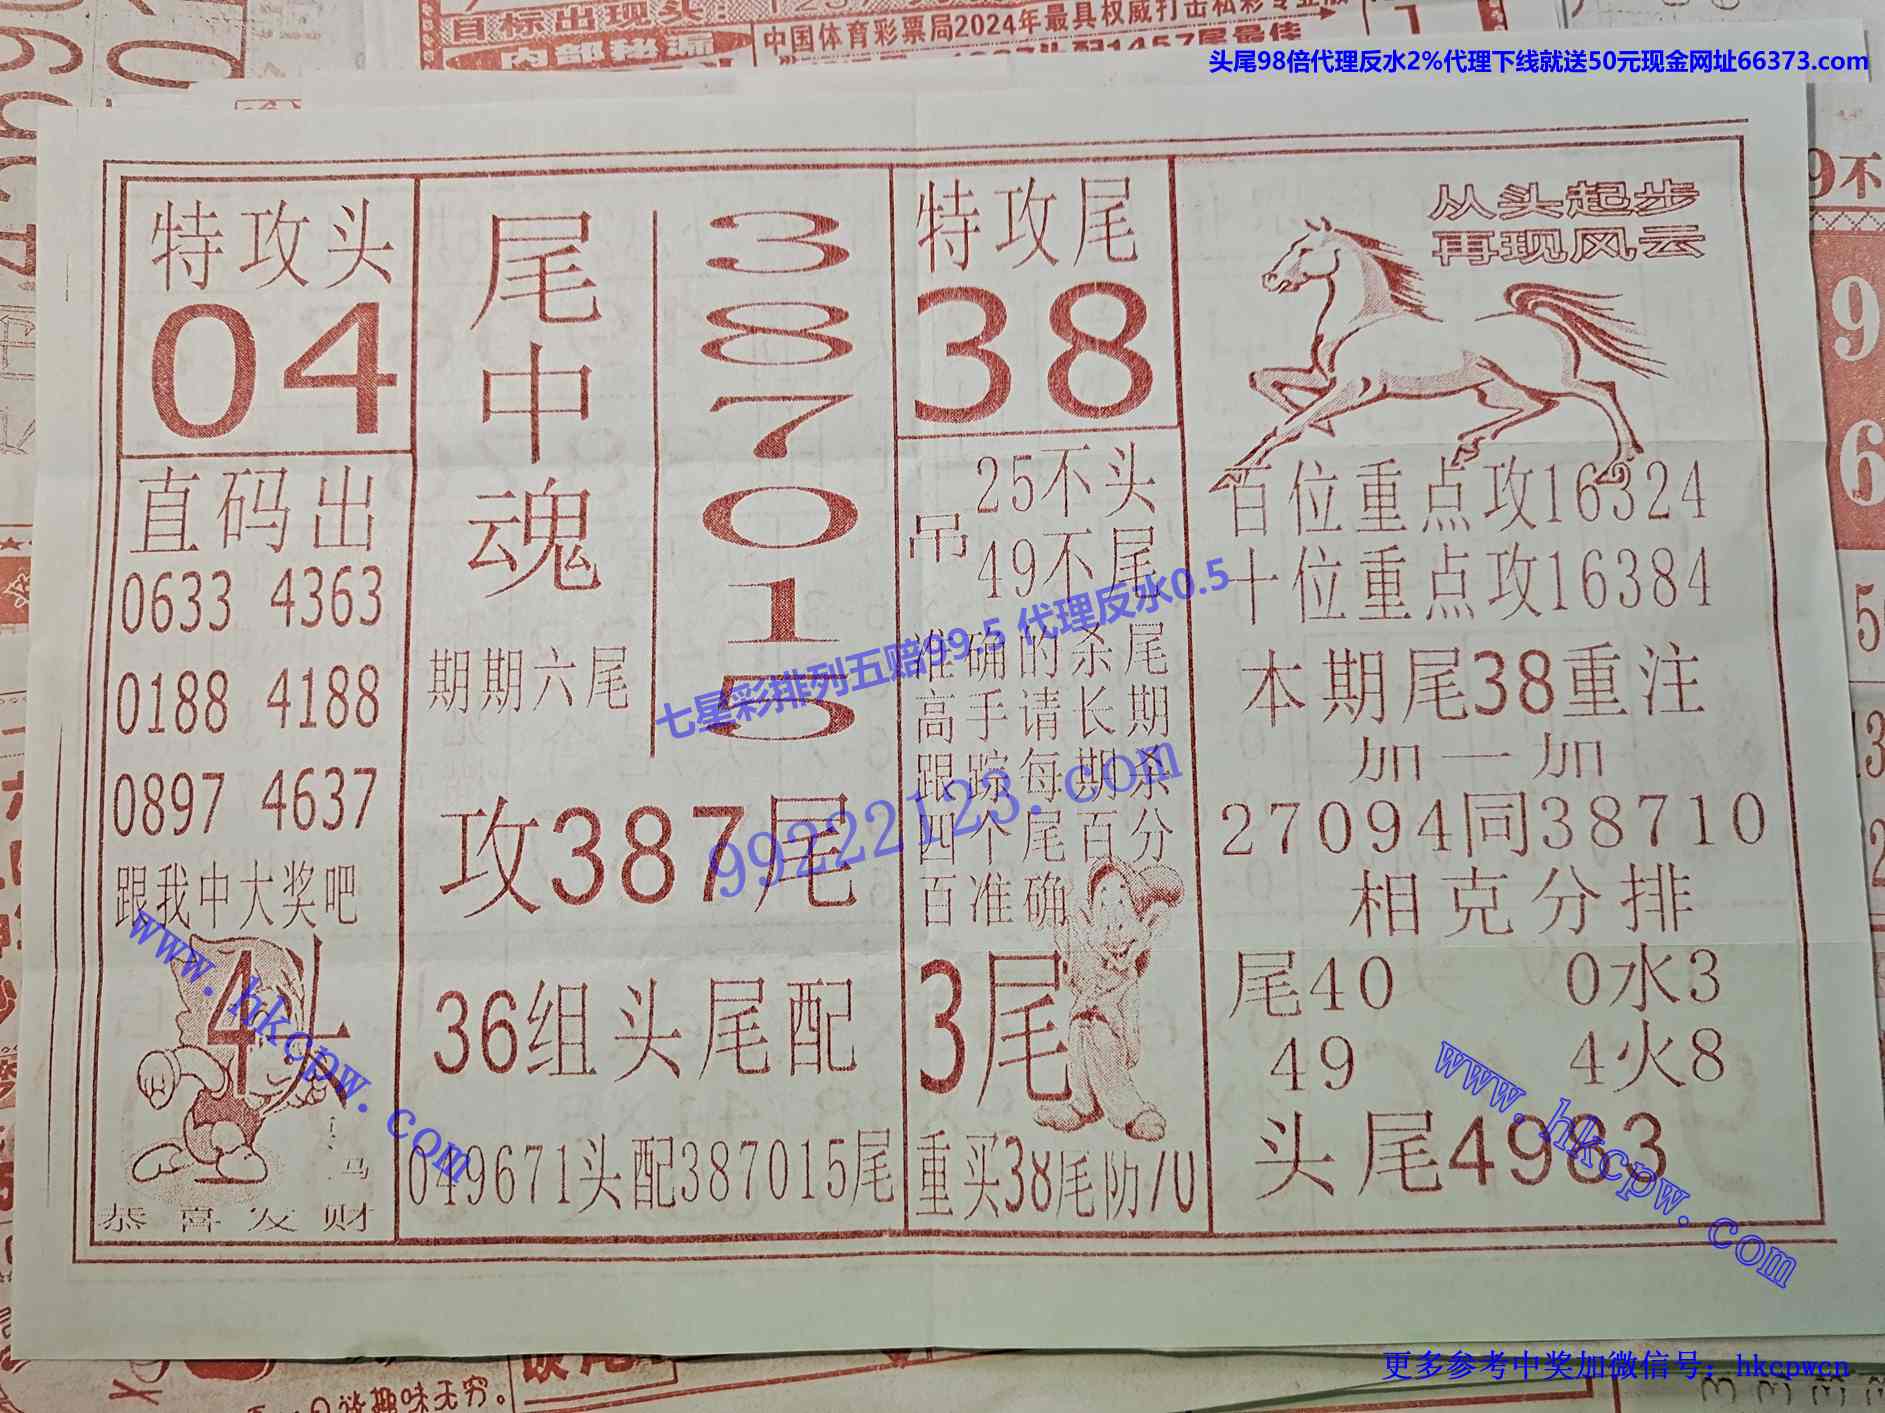 目标出现头:
内部秘漏
中国体育彩票局2024年最具权威打击私彩专业版
头尾98倍代理反水2%代理下线就送50元现金网址66373.com
特攻头
04
直码出
0633 4363
0188 4188
0897 4637
跟我中大奖吧
4头
马
恭喜发财
尾中魂
387015
期期六尾
攻387尾
36组头尾配
049671头配387015尾
特攻尾
38
吊
25不头
49不尾
准确的杀尾
高手请长期
跟踪每期杀
四个尾百分
百准确
3尾
重买38尾防70
从头起步
再现风云
百位重点攻16324
十位重点攻16384
本期尾38重注
加一加
27094同38710
相克分排
尾40 0水3
49 4火8
头尾4983
七星彩排列五赔99.5 代理反水0.5
99222123.com
www.hkcpw.com
www.hkcpw.com
9不
9
6
趣味无穷。
更多参考中奖加微信号：hkcpwcn